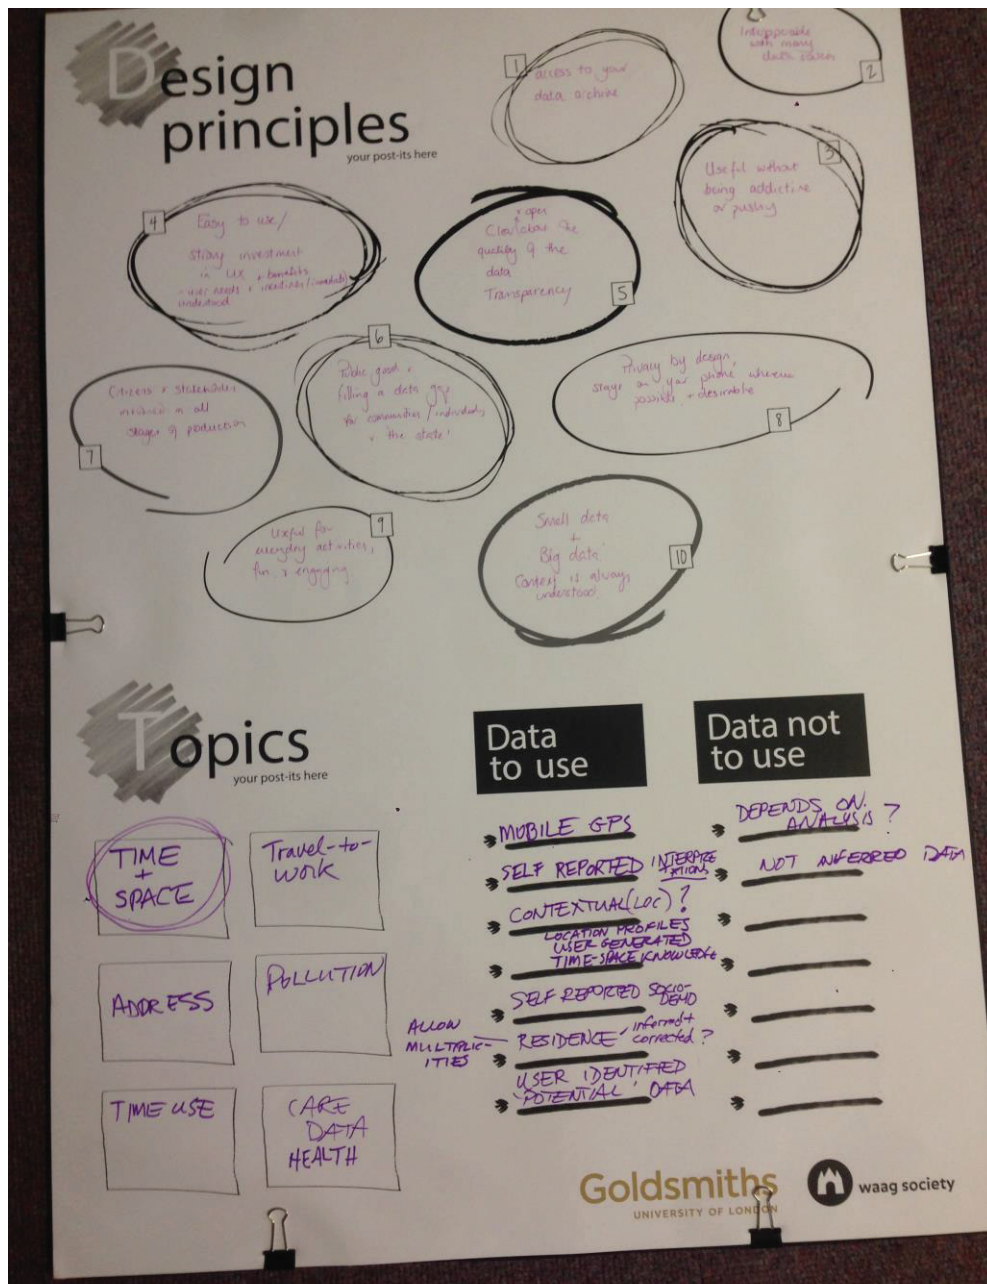 Design
principles
your post-its here
1
access to your
data archive
2
Interoperable
with many
data
3
Useful without
being addictive
or pushy
4
Easy to use/
strong investment
in UX + benefits
- user needs + incentives/
understood
+ open
Clear about the
quality of the
data
Transparency
5
6
Public good +
filling a data gap
for communities/individuals
+ the state!
Citizens + stakeholders
involved in all
stages of production
7
Privacy by design,
stage on your phone wherever
possible + desirable
8
9
Useful for
everyday activities,
fun + engaging
Small data
+
Big data
Context is always
understood.
10
Topics
your post-its here
TIME
+
SPACE
Travel-to-
work
ADDRESS
POLLUTION
TIME USE
CARE
DATA
HEALTH
Data
to use
MOBILE GPS
SELF REPORTED INTERPRE
TATIONS
CONTEXTUAL (LOC)?
LOCATION PROFILES
USER GENERATED
TIME-SPACE KNOWLEDGE
SELF REPORTED SOCIO-
DEMO
ALLOW
MULTIPLIC-
ITIES
RESIDENCE inferred +
corrected?
USER IDENTIFIED
'POTENTIAL' DATA
Data not
to use
DEPENDS ON
ANALYSIS?
NOT INFERRED DATA
Goldsmiths
UNIVERSITY OF LONDON
waag society